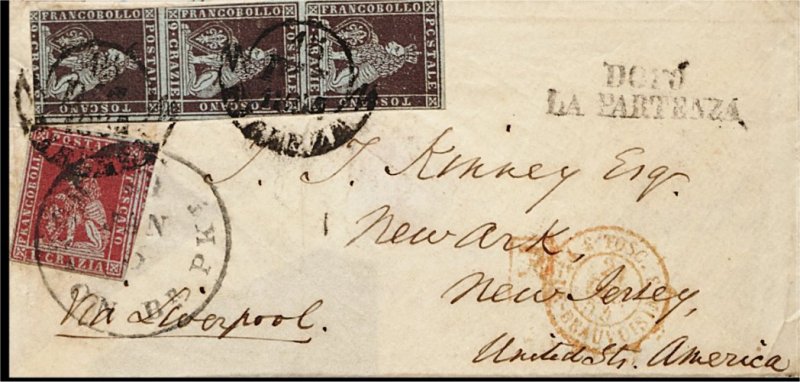 FRANCOBOLLO
POSTALE
9 CRAZIE
TOSCANO
FRANCOBOLLO
POSTALE
9 CRAZIE
TOSCANO
FRANCOBOLLO
POSTALE
CRAZIE
TOSCANO
DOPO
LA PARTENZA
FRANCOBOLLO
POSTALE
TOSCANO
1 CRAZIA
BR PKT
TOSC.
J. J. Kinney Esq.
Newark,
New Jersey,
United Sts. America
Via Liverpool.